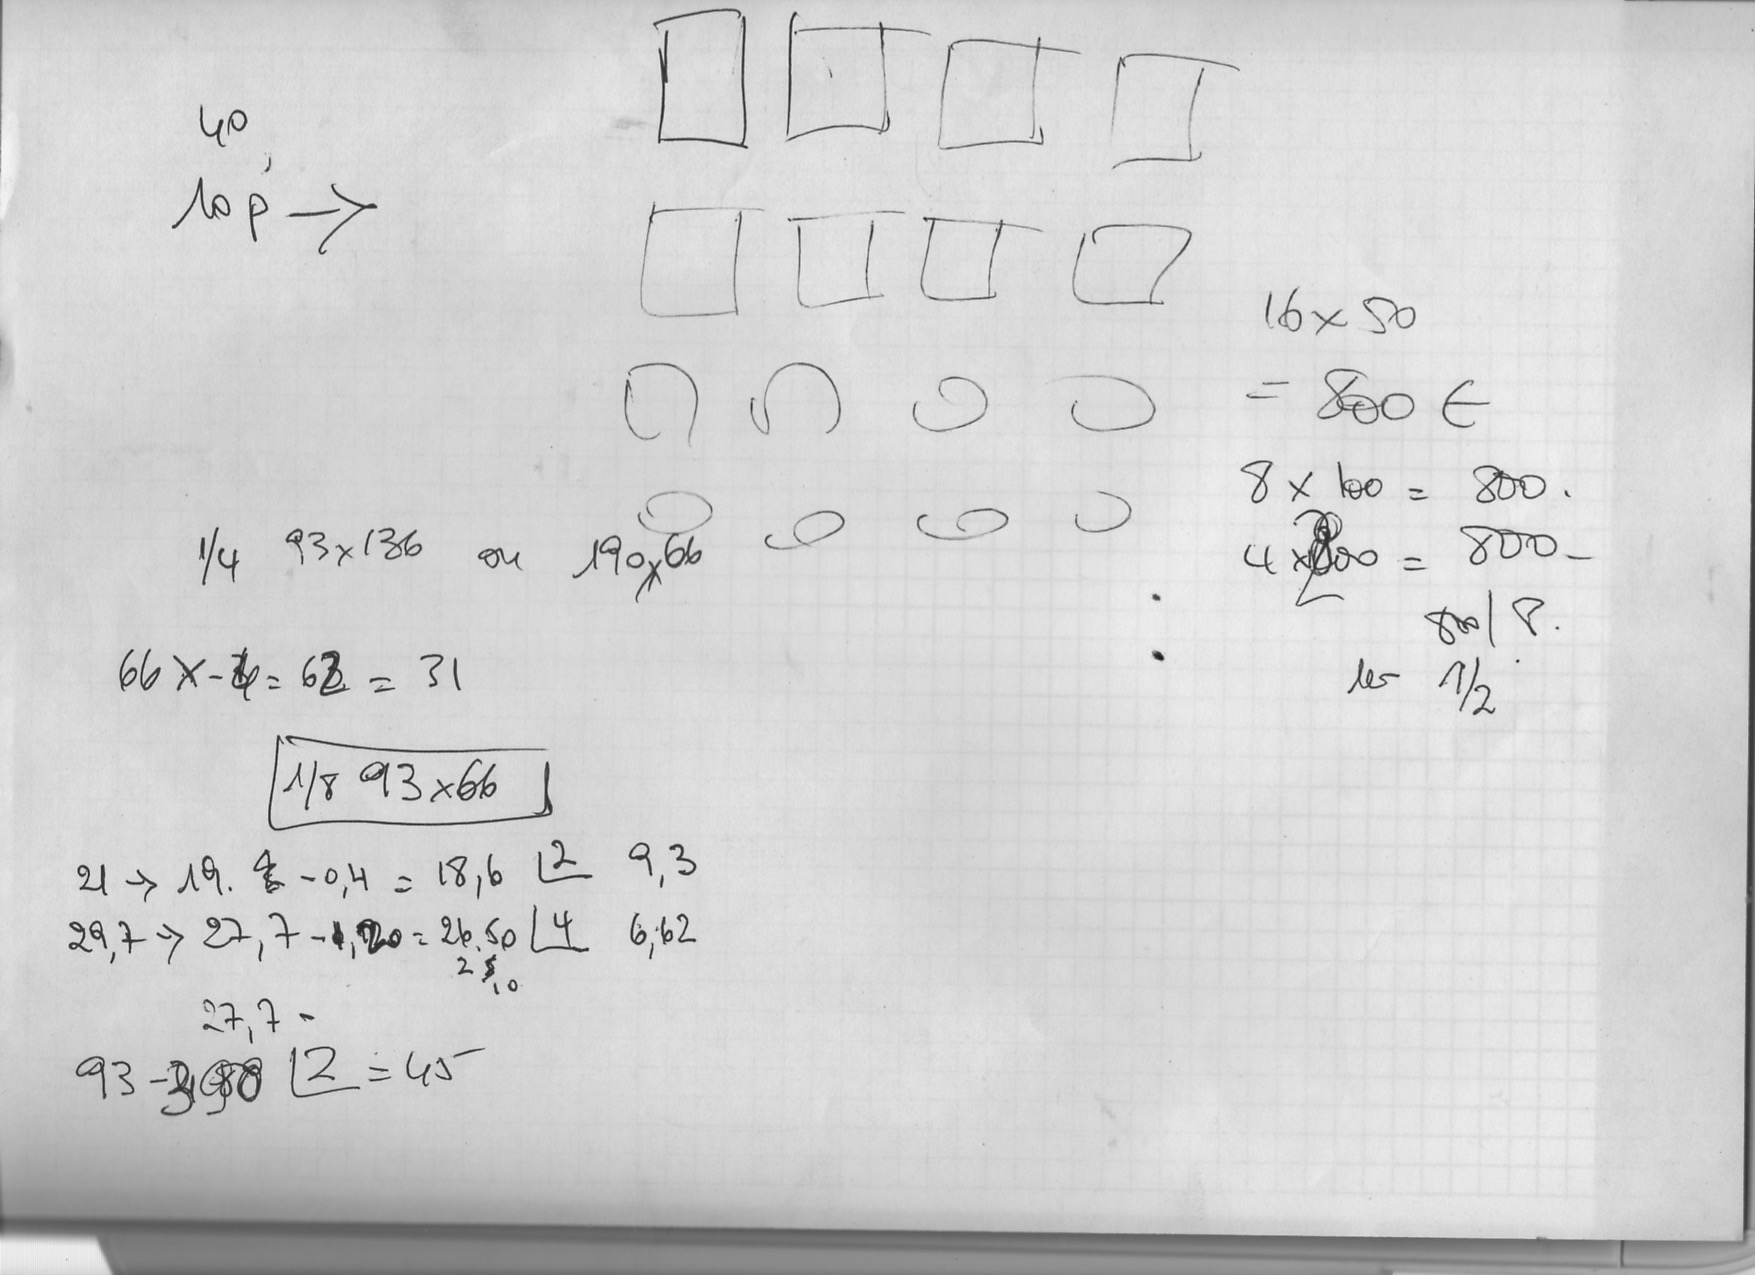 40
10 p →
16 x 50
= 800 €
8 x 100 = 800.
4 x 200 = 800 -
800 / P.
les 1/2
1/4 93 x 136 ou 190 x 66
66 x - 4 = 62 = 31
1/8 93 x 66
21 → 19. - 0,4 = 18,6 2 9,3
29,7 → 27,7 - 1,20 = 26,50 4 6,62
27,7 -
93 - 2 = 45